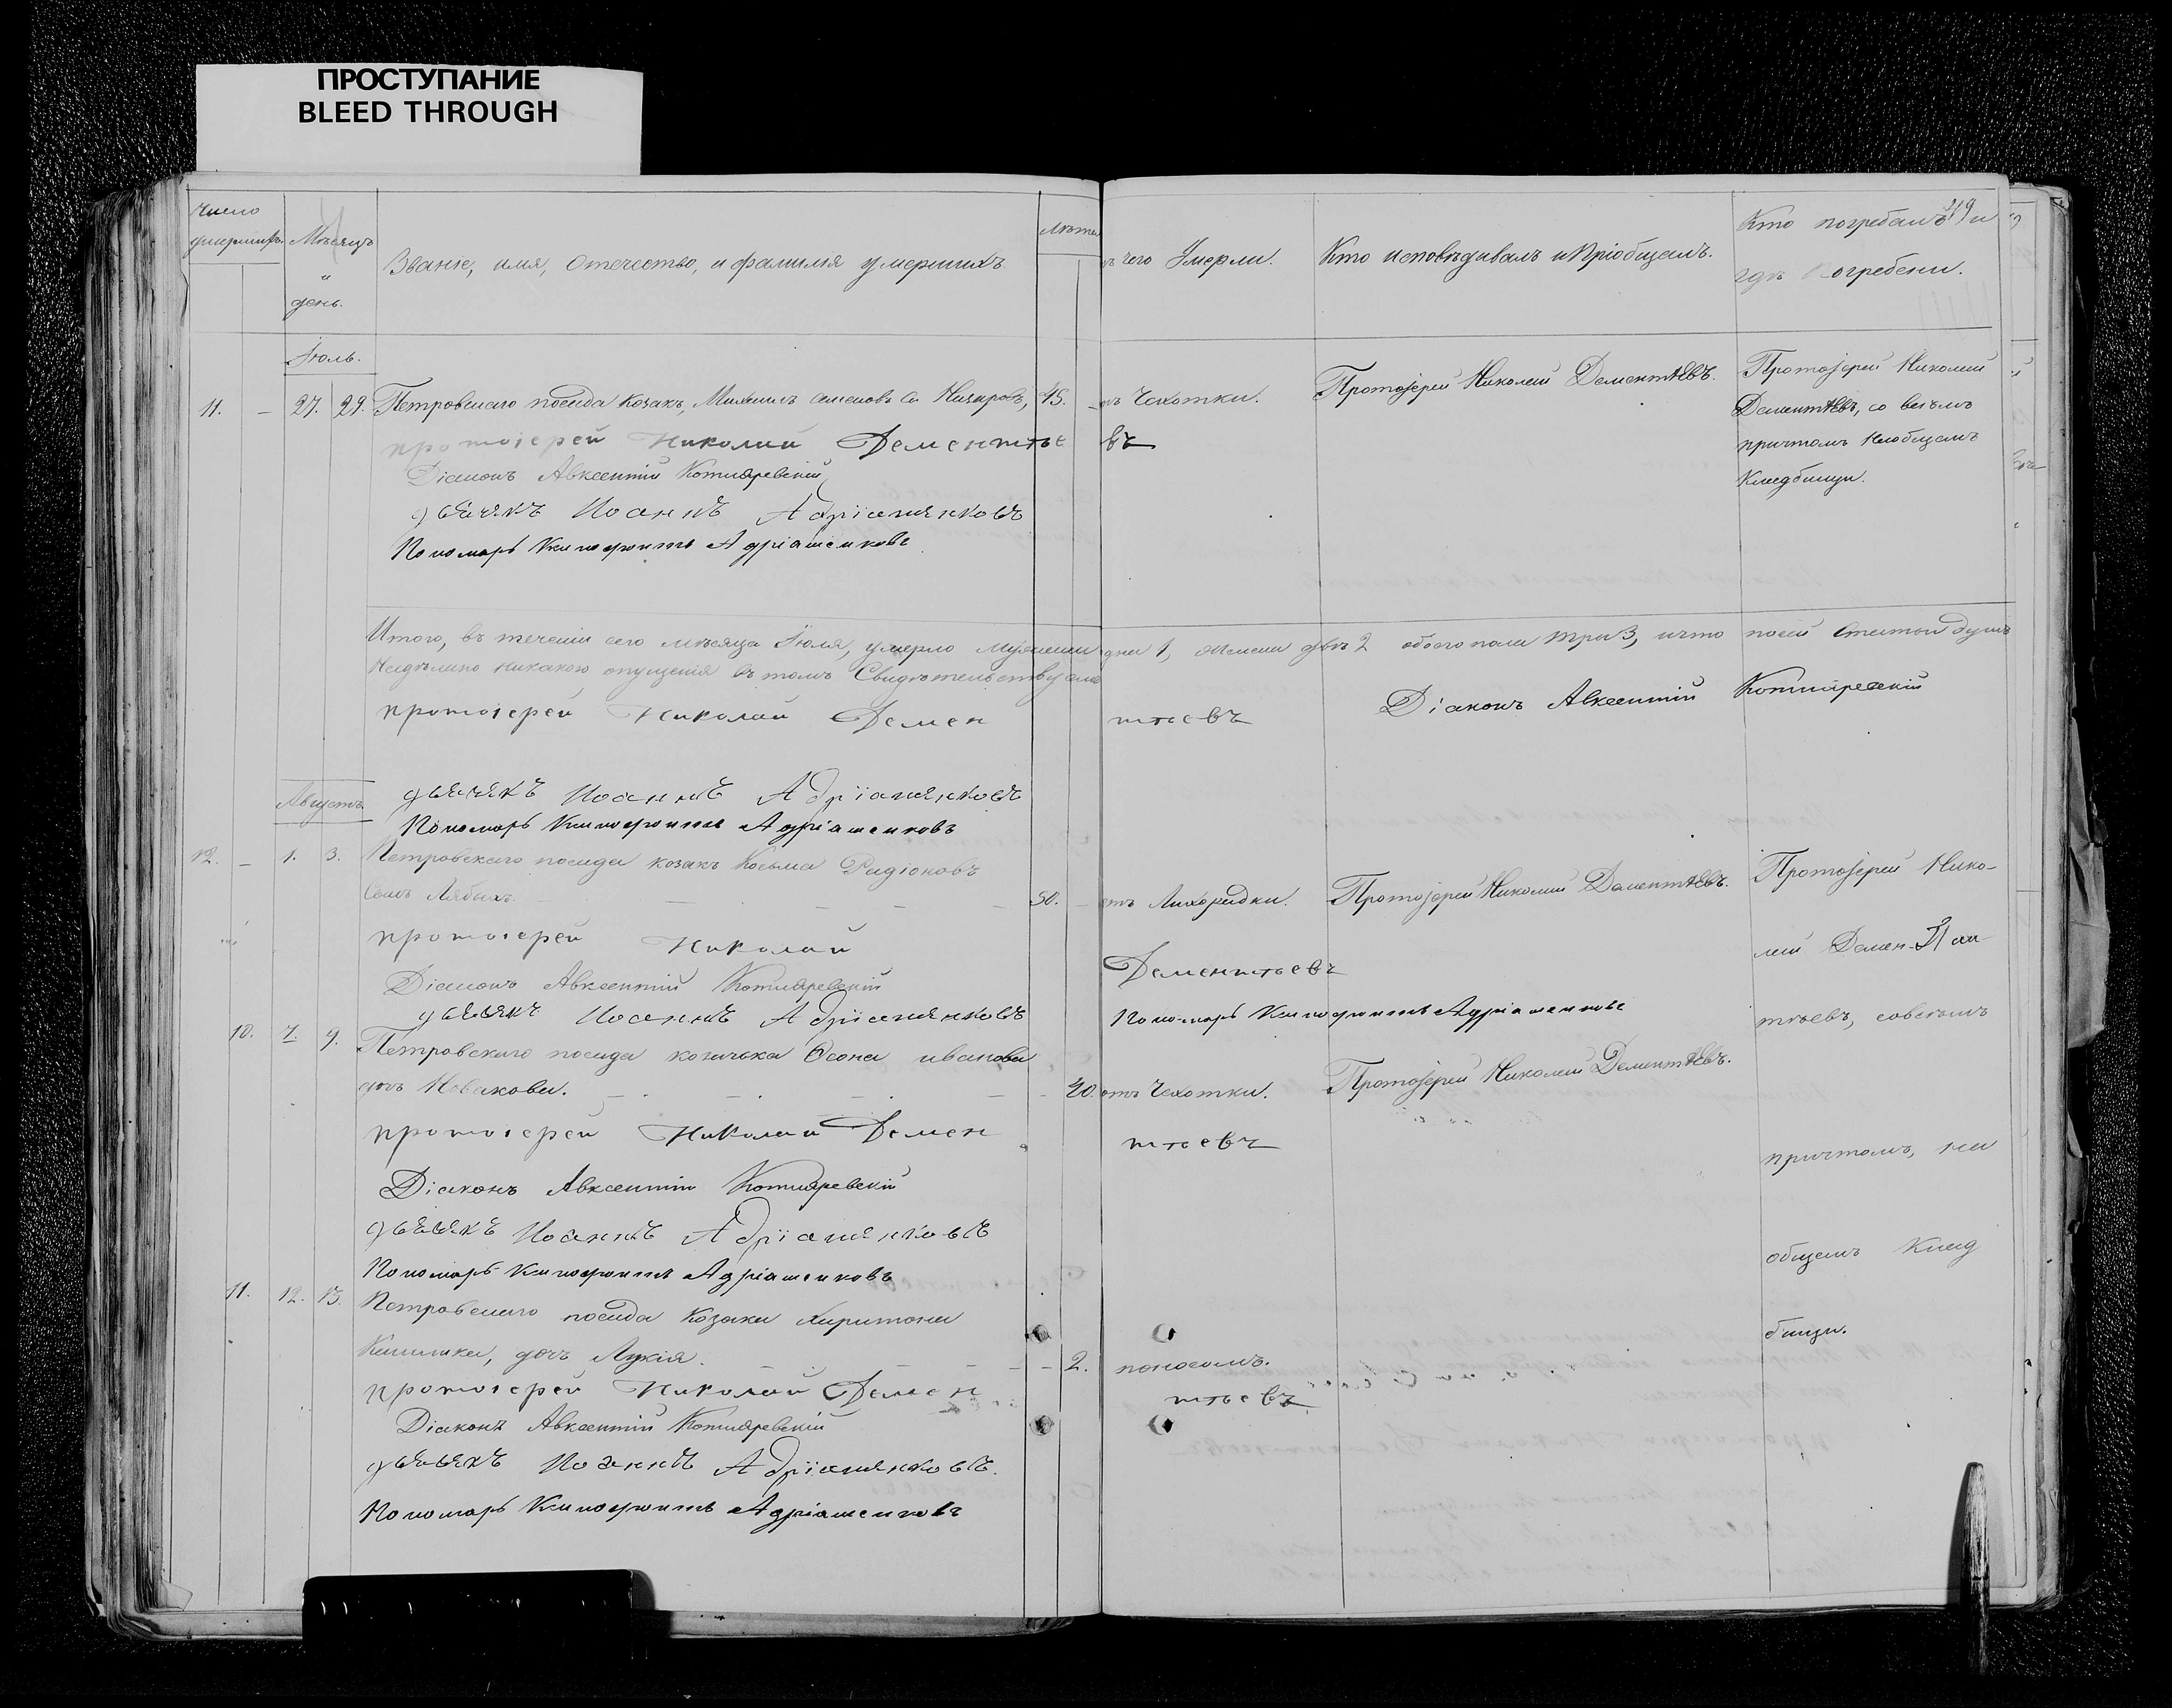 ПРОСТУПАНИЕ
BLEED THROUGH
Число умершихъ.
Мѣсяцъ и день.
Званіе, имя, Отечество, и фамилія умершихъ.
Лѣта
чего Умерли.
Кто исповѣдывалъ и Пріобщалъ.
Кто погребалъ и
гдѣ Погребены.
Іюль.
11. — 27. 29. Петровскаго посада козакъ, Михаилъ Семеновъ 45. Чахотки. Протоіерей Николай Дементьевъ. Протоіерей Николай
Дементьевъ, со всѣмъ
протоіерей Николай Дементьевъ
причтомъ на общемъ
Діаконъ Авксентій Котляревскій
Кладбищи.
дьячекъ Иоаннъ Адріяшенковъ
Пономарь Ксенофонтъ Адріашенковъ
Итого, въ теченіи сего мѣсяца Іюля, умерло мужеска 1, женска двѣ 2 обоего пола три 3, и что посей Статьи
никакого опущенія въ томъ Свидѣтельствуемъ
протоіерей Николай Дементьевъ Діаконъ Авксентій Котляревскій
дьячекъ Иоаннъ Адріяшенковъ
Августъ
Пономарь Ксенофонтъ Адріашенковъ
12. — 1. 3. Петровскаго посада козакъ Косьма Радіоновъ
Сынъ 50. отъ Лихорадки. Протоіерей Николай Дементьевъ. Протоіерей Нико-
протоіерей Николай Дементьевъ
лай Демен-
Діаконъ Авксентій Котляревскій
дьячекъ Иоаннъ Адріяшенковъ Пономарь Ксенофонтъ Адріашенковъ
тьевъ, совсѣмъ
10. 7. 9. Петровскаго посада козачька иванова
дочь Новакова. 20. отъ Чахотки. Протоіерей Николай Дементьевъ.
протоіерей Николай Дементьевъ
причтомъ, на
Діаконъ Авксентій Котляревскій
дьячекъ Иоаннъ Адріяшенковъ
общемъ Клад
Пономарь Ксенофонтъ Адріашенковъ
11. 12. 13. Петровскаго посада Козака Харитона
бищи.
дочь Лукія. 2. поносомъ.
протоіерей Николай Дементьевъ
Діаконъ Авксентій Котляревскій
дьячекъ Иоаннъ Адріяшенковъ.
Пономарь Ксенофонтъ Адріашенковъ